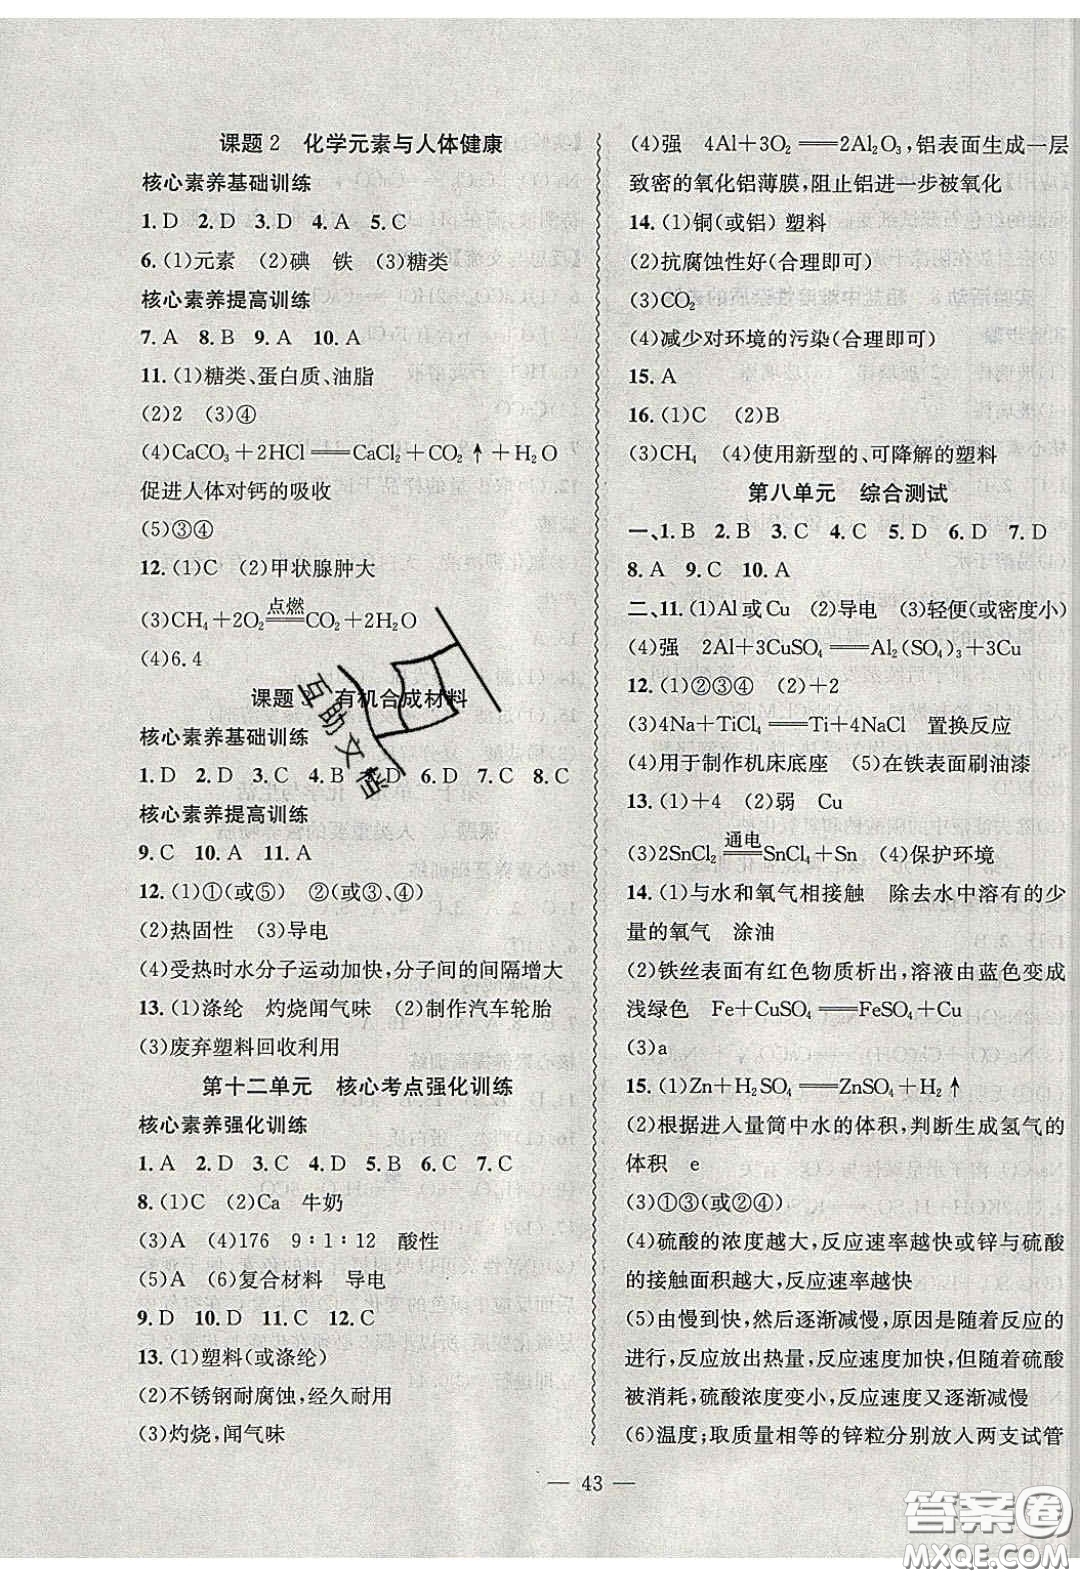 课题2 化学元素与人体健康
核心素养基础训练
1. D 2. D 3. D 4. A 5. C
6. (1)元素 (2)碘 铁 (3)糖类
核心素养提高训练
7. A 8. B 9. A 10. A
11. (1)糖类、蛋白质、油脂
(2)2 (3)④
(4)CaCO₃+2HCl══CaCl₂+CO₂↑+H₂O
促进人体对钙的吸收
(5)③④
12. (1)C (2)甲状腺肿大
(3)CH₄+2O₂ 点燃══ CO₂+2H₂O
(4)6.4
课题 有机合成材料
核心素养基础训练
1. D 2. D 3. C 4. B 5. D 6. D 7. D 8. C
核心素养提高训练
9. C 10. A 11. A
12. (1)①(或⑤) ②(或③、④)
(2)热固性 (3)导电
(4)受热时水分子运动加快,分子间的间隔增大
13. (1)涤纶 灼烧闻气味 (2)制作汽车轮胎
(3)废弃塑料回收利用
第十二单元 核心考点强化训练
核心素养强化训练
1. A 2. D 3. C 4. C 5. C 6. C 7. C
8. (1)C (2)Ca 牛奶
(3)A (4)176 9∶1∶12 酸性
(5)A (6)复合材料 导电
9. D 10. D 11. C 12. C
13. (1)塑料(或涤纶)
(2)不锈钢耐腐蚀,经久耐用
(3)灼烧,闻气味
(4)强 4Al+3O₂══2Al₂O₃,铝表面生成一层
致密的氧化铝薄膜,阻止铝进一步被氧化
14. (1)铜(或铝) 塑料
(2)抗腐蚀性好(合理即可)
(3)CO₂
(4)减少对环境的污染(合理即可)
15. A
16. (1)C (2)B
(3)CH₄ (4)使用新型的、可降解的塑料
第八单元 综合测试
一、1. B 2. B 3. C 4. C 5. D 6. D 7. D
8. A 9. C 10. A
二、11. (1)Al或Cu (2)导电 (3)轻便(或密度小)
(4)强 2Al+3CuSO₄══Al₂(SO₄)₃+3Cu
12. (1)②③④ (2)+2
(3)4Na+TiCl₄══Ti+4NaCl 置换反应
(4)用于制作机床底座 (5)在铁表面刷油漆
13. (1)+4 (2)弱 Cu
(3)2SnCl₂ 通电══ SnCl₄+Sn (4)保护环境
14. (1)与水和氧气相接触 除去水中溶有的少
量的氧气 涂油
(2)铁丝表面有红色物质析出,溶液由蓝色变成
浅绿色 Fe+CuSO₄══FeSO₄+Cu
(3)a
15. (1)Zn+H₂SO₄══ZnSO₄+H₂↑
(2)根据进入量筒中水的体积,判断生成氢气的
体积 e
(3)①③(或②④)
(4)硫酸的浓度越大,反应速率越快或锌与硫酸
的接触面积越大,反应速率越快
(5)由慢到快,然后逐渐减慢,原因是随着反应的
进行,反应放出热量,反应速度加快,但随着硫酸
被消耗,硫酸浓度变小,反应速度又逐渐减慢
(6)温度;取质量相等的锌粒分别放入两支试管
— 43 —
互助文档
答案圈
MXQE.COM